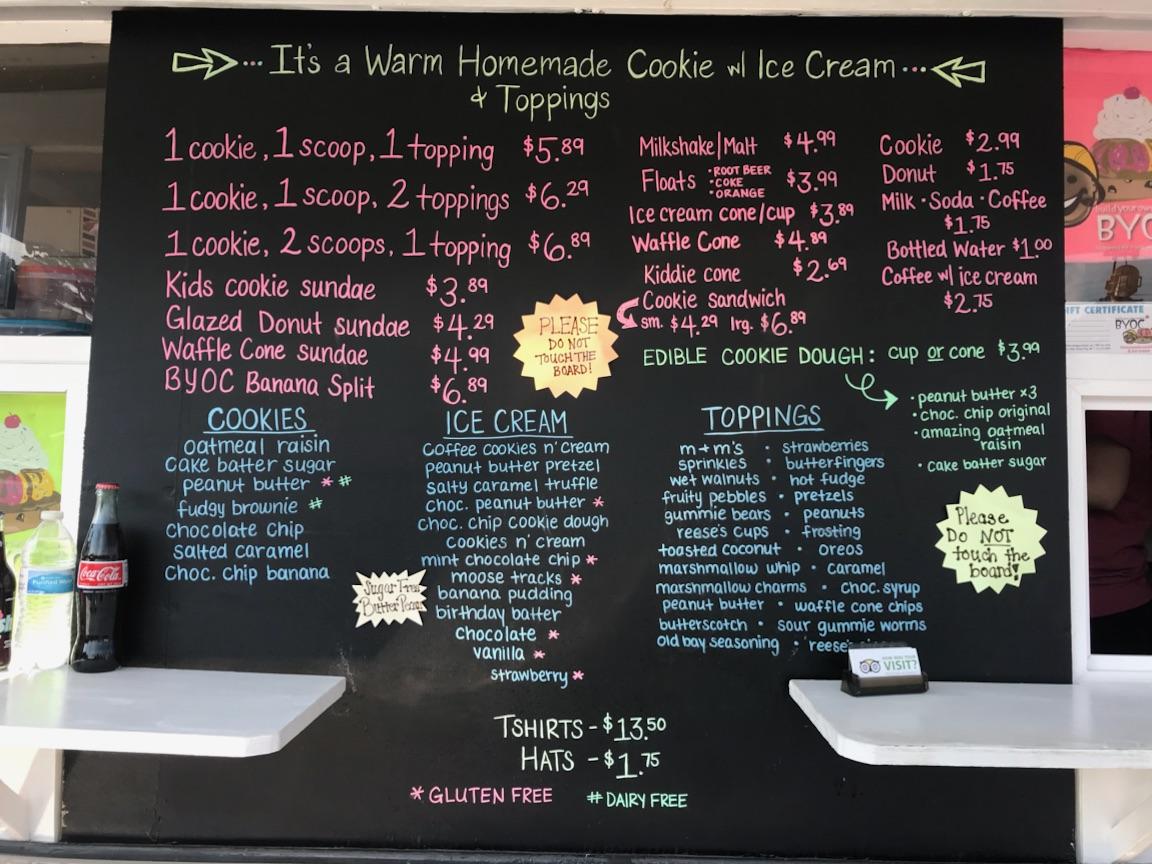 It's a Warm Homemade Cookie w/ Ice Cream
& Toppings
1 cookie, 1 scoop, 1 topping $5.89
1 cookie, 1 scoop, 2 toppings $6.29
1 cookie, 2 scoops, 1 topping $6.89
Kids cookie sundae $3.89
Glazed Donut sundae $4.29
Waffle Cone sundae $4.99
BYOC Banana Split $6.89
Milkshake/Malt $4.99
Floats : ROOT BEER
: COKE $3.99
• ORANGE
Ice cream cone/cup $3.89
Waffle Cone $4.89
Kiddie cone $2.69
Cookie sandwich
sm. $4.29 lrg. $6.89
Cookie $2.99
Donut $1.75
Milk · Soda · Coffee
$1.75
Bottled Water $1.00
Coffee w/ ice cream
$2.75
PLEASE
DO NOT
TOUCH THE
BOARD!
EDIBLE COOKIE DOUGH: cup or cone $3.99
· peanut butter x3
· choc. chip original
· amazing oatmeal
raisin
· cake batter sugar
COOKIES
oatmeal raisin
Cake batter sugar
peanut butter * #
fudgy brownie #
Chocolate Chip
Salted caramel
Choc. chip banana
ICE CREAM
Coffee cookies n' cream
peanut butter pretzel
Salty caramel truffle
Choc. peanut butter *
choc. chip cookie dough
cookies n' cream
mint chocolate chip *
moose tracks *
banana pudding
birthday batter
chocolate *
vanilla *
strawberry *
Sugar Free
Butter Pecan
TOPPINGS
m+m's · strawberries
sprinkles · butterfingers
wet walnuts · hot fudge
fruity pebbles · pretzels
gummie bears · peanuts
reese's cups · frosting
toasted coconut · oreos
marshmallow whip · caramel
marshmallow charms · choc. syrup
peanut butter · waffle cone chips
butterscotch · sour gummie worms
old bay seasoning · reese's
Please
Do NOT
touch the
board!
TSHIRTS - $13.50
HATS - $1.75
* GLUTEN FREE # DAIRY FREE
Coca-Cola
VISIT?
BYOC